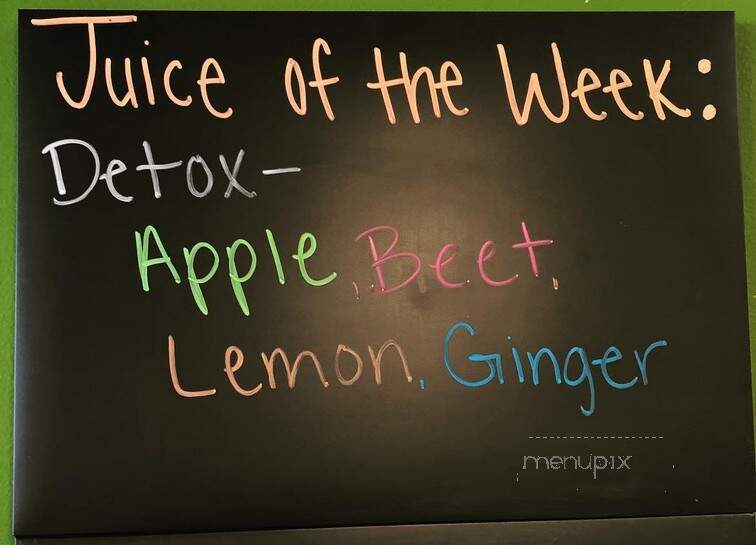 Juice of the Week:
Detox-
Apple, Beet,
Lemon, Ginger
menupix